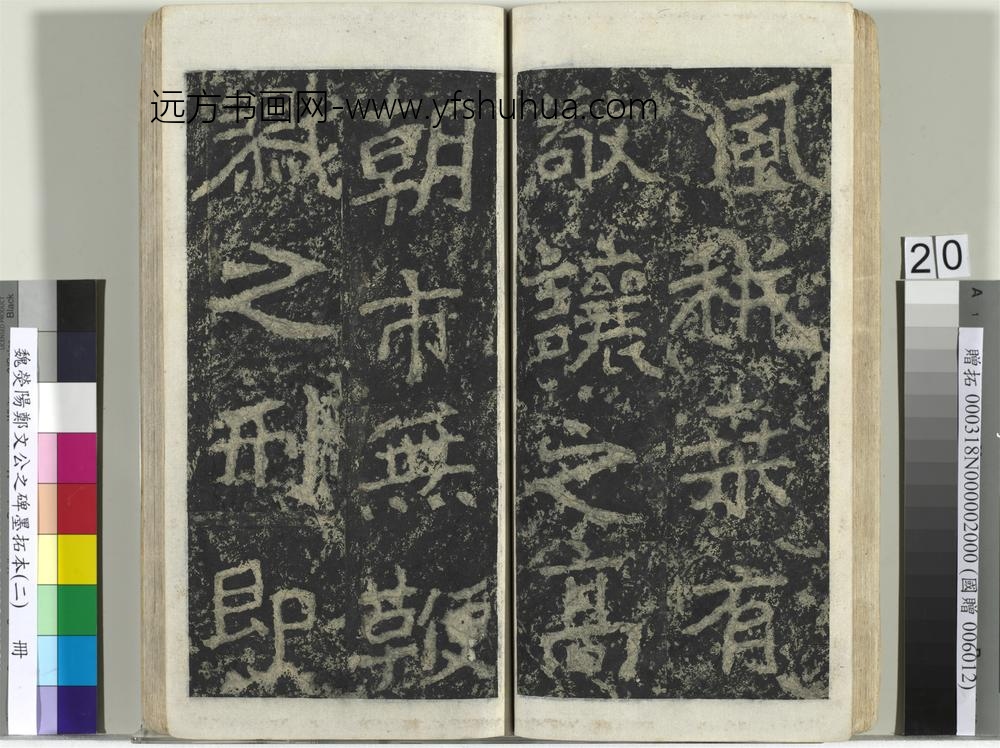 远方书画网-www.yfshuhua.com
風有
敬讓之高
朝市無鞭
之刑即
20
贈拓 000318N000002000 (國贈 006012)
魏滎陽鄭文公之碑墨拓本(二) 冊